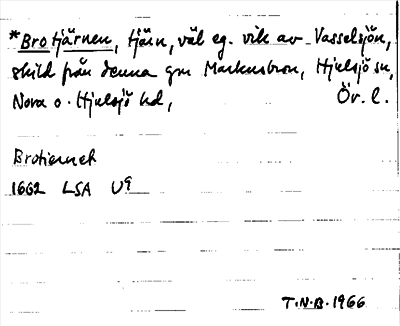 *Brotjärnen, tjärn, väl eg. vik av Vasselsjön,
skild från denna gm Markusbron, Hjulsjö sn,
Nora o. Hjulsjö hd, Ör. l.
Brotiernet
1662 LSA U9
T.N.B. 1966